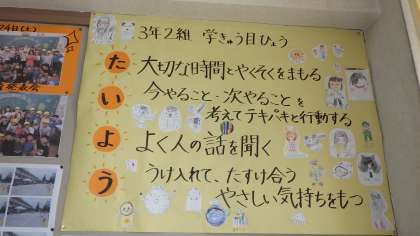 3年2組 学きゅう目ひょう
た 大切な時間とやくそくをまもる
い 今やること・次やることを
考えてテキパキと行動する
よ よく人の話を聞く
う うけ入れて、たすけ合う
やさしい気持ちをもつ
24日(土)
発表会